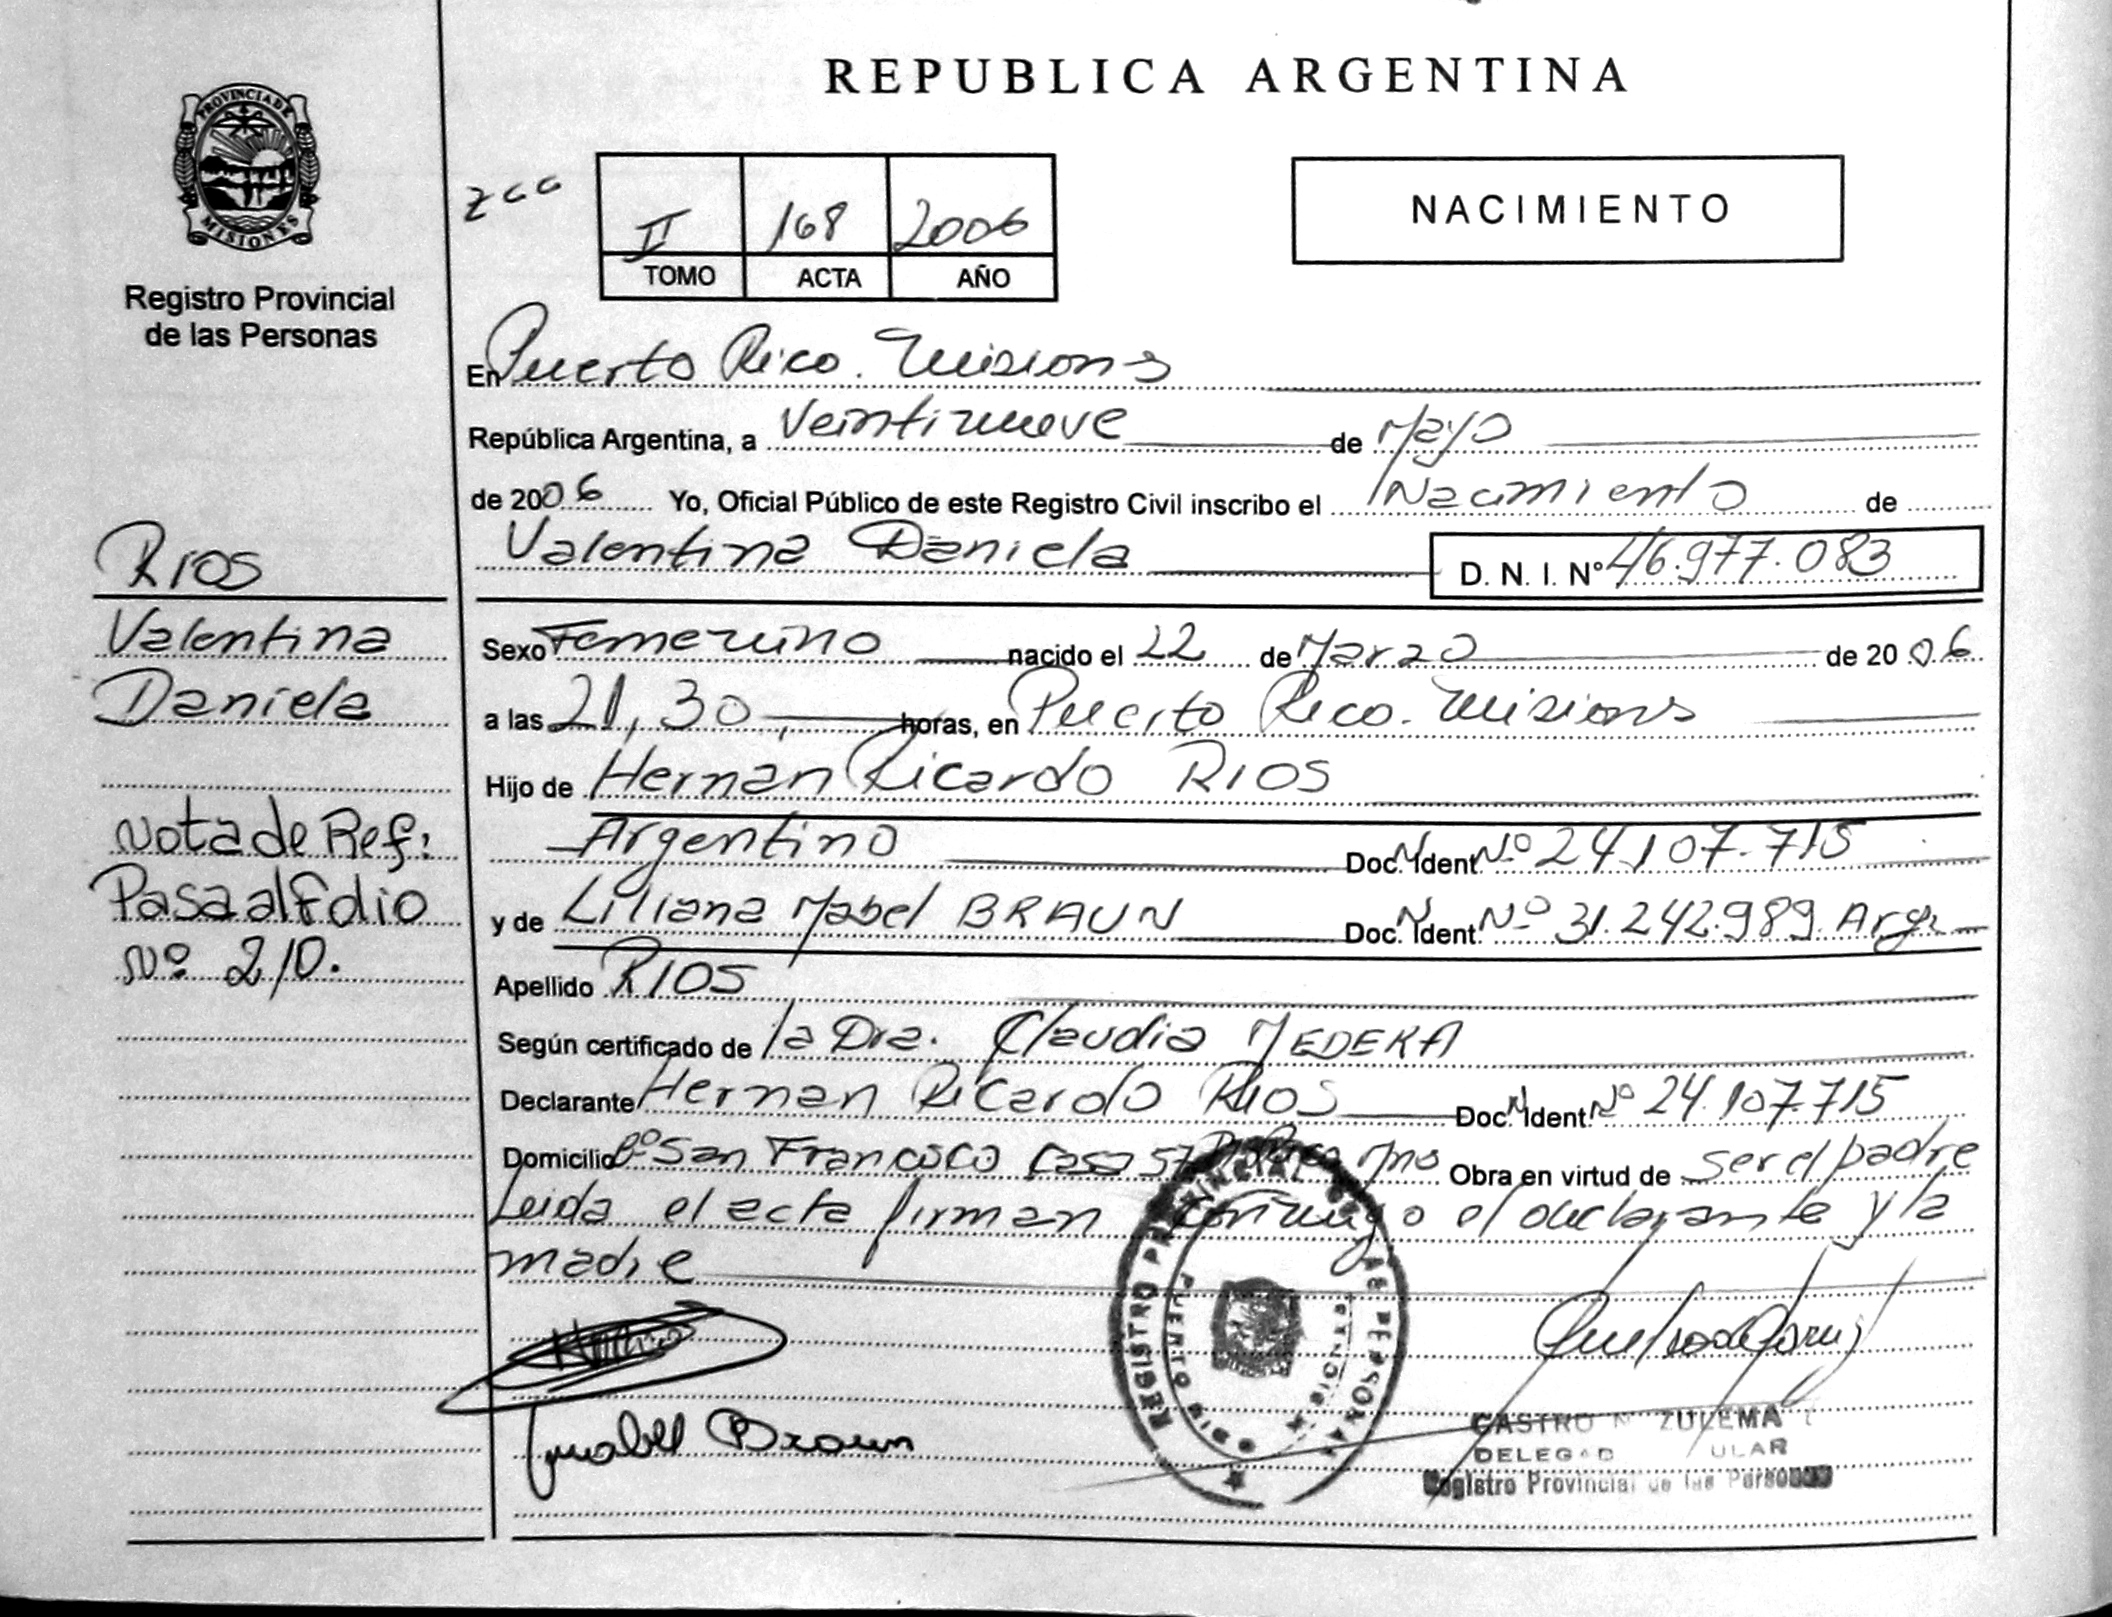 REPUBLICA ARGENTINA
PROVINCIA DE
MISIONES
Registro Provincial
de las Personas
200
II 168 2006
TOMO ACTA AÑO
NACIMIENTO
En Puerto Rico. Misiones
República Argentina, a Veintinueve de Mayo
de 2006 Yo, Oficial Público de este Registro Civil inscribo el Nacimiento de
Valentina Daniela D. N. I. Nº 46.977.083
RIOS
Valentina
Daniela
Sexo Femenino nacido el 22 de Marzo de 2006
a las 21,30 horas, en Puerto Rico. Misiones
Hijo de Hernan Ricardo RIOS
Argentino Doc. Ident. Nº 24.107.715
y de Liliana Mabel BRAUN Doc. Ident. Nº 31.242.989. Arg.
Nota de Ref:
Pasa al Folio
Nº 210.
Apellido RIOS
Según certificado de la Dra. Claudia
Declarante Hernan Ricardo RIOS Doc. Ident. Nº 24.107.715
Domicilio Bº San Francisco Casa Obra en virtud de ser el padre
Leida el acta firman conmigo el declarante y la
madre
REGISTRO PROVINCIAL DE PERSONAS
PUERTO RICO MISIONES
Braun
CASTRO ZULEMA
Registro Provincial de las Personas